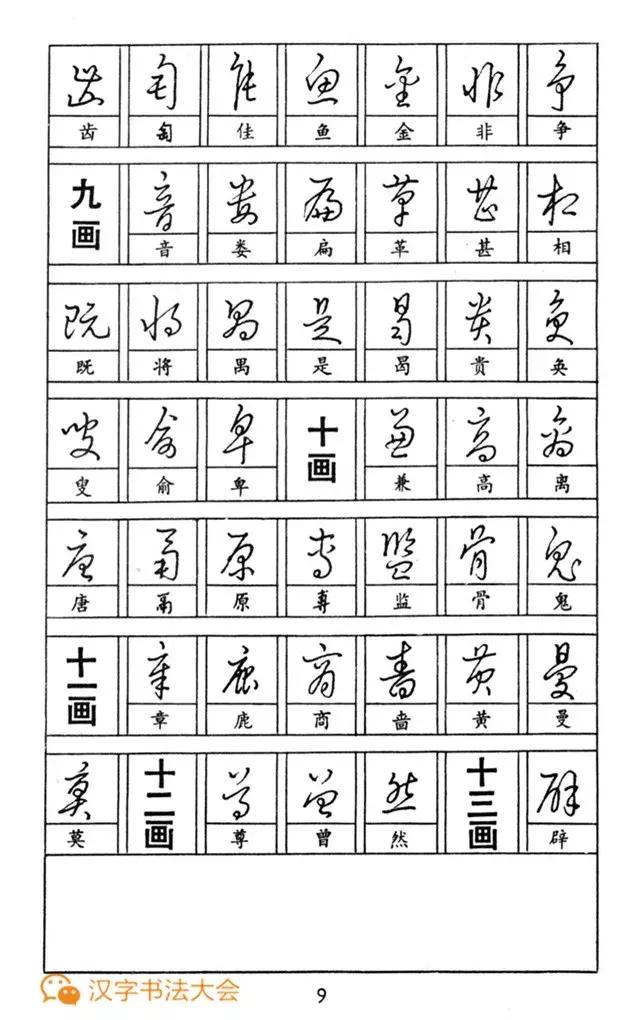 齿 匋 佳 鱼 金 非 争
齿 匋 佳 鱼 金 非 争
九画 音 娄 扁 革 甚 相
音 娄 扁 革 甚 相
既 将 禺 是 曷 贵 奂
既 将 禺 是 曷 贵 奂
叟 俞 卑 十画 兼 高 离
叟 俞 卑 兼 高 离
唐 鬲 原 尃 监 骨 鬼
唐 鬲 原 尃 监 骨 鬼
十一画 章 鹿 商 啬 黄 曼
章 鹿 商 啬 黄 曼
莫 十二画 尊 曾 然 十三画 辟
莫 尊 曾 然 辟
汉字书法大会
9